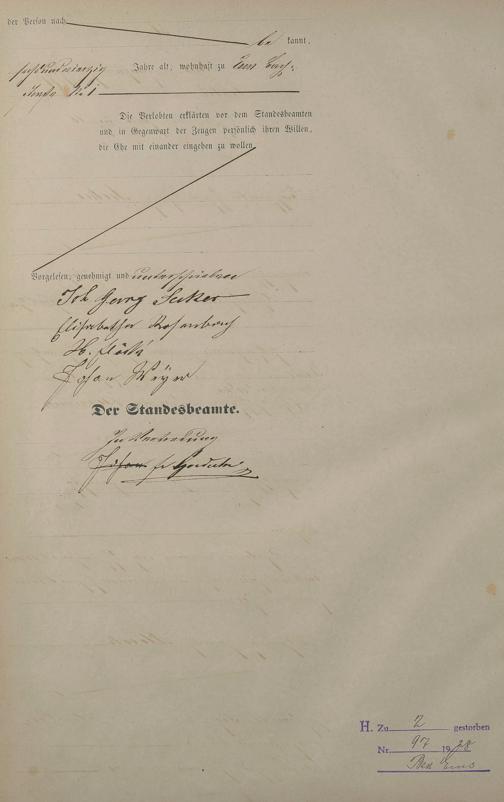 der Person nach
be kannt,
sechsundvierzig Jahre alt, wohnhaft zu Ems
N. 1
Die Verlobten erklärten vor dem Standesbeamten
und in Gegenwart der Zeugen persönlich ihren Willen,
die Ehe mit einander eingehen zu wollen.
Vorgelesen, genehmigt und unterschrieben
Joh Georg
Elisabetha Rosenbach
H.
Johan Weyer
Der Standesbeamte.
In Vertretung
H. Zu 2 gestorben
Nr. 97 1928
Bad Ems